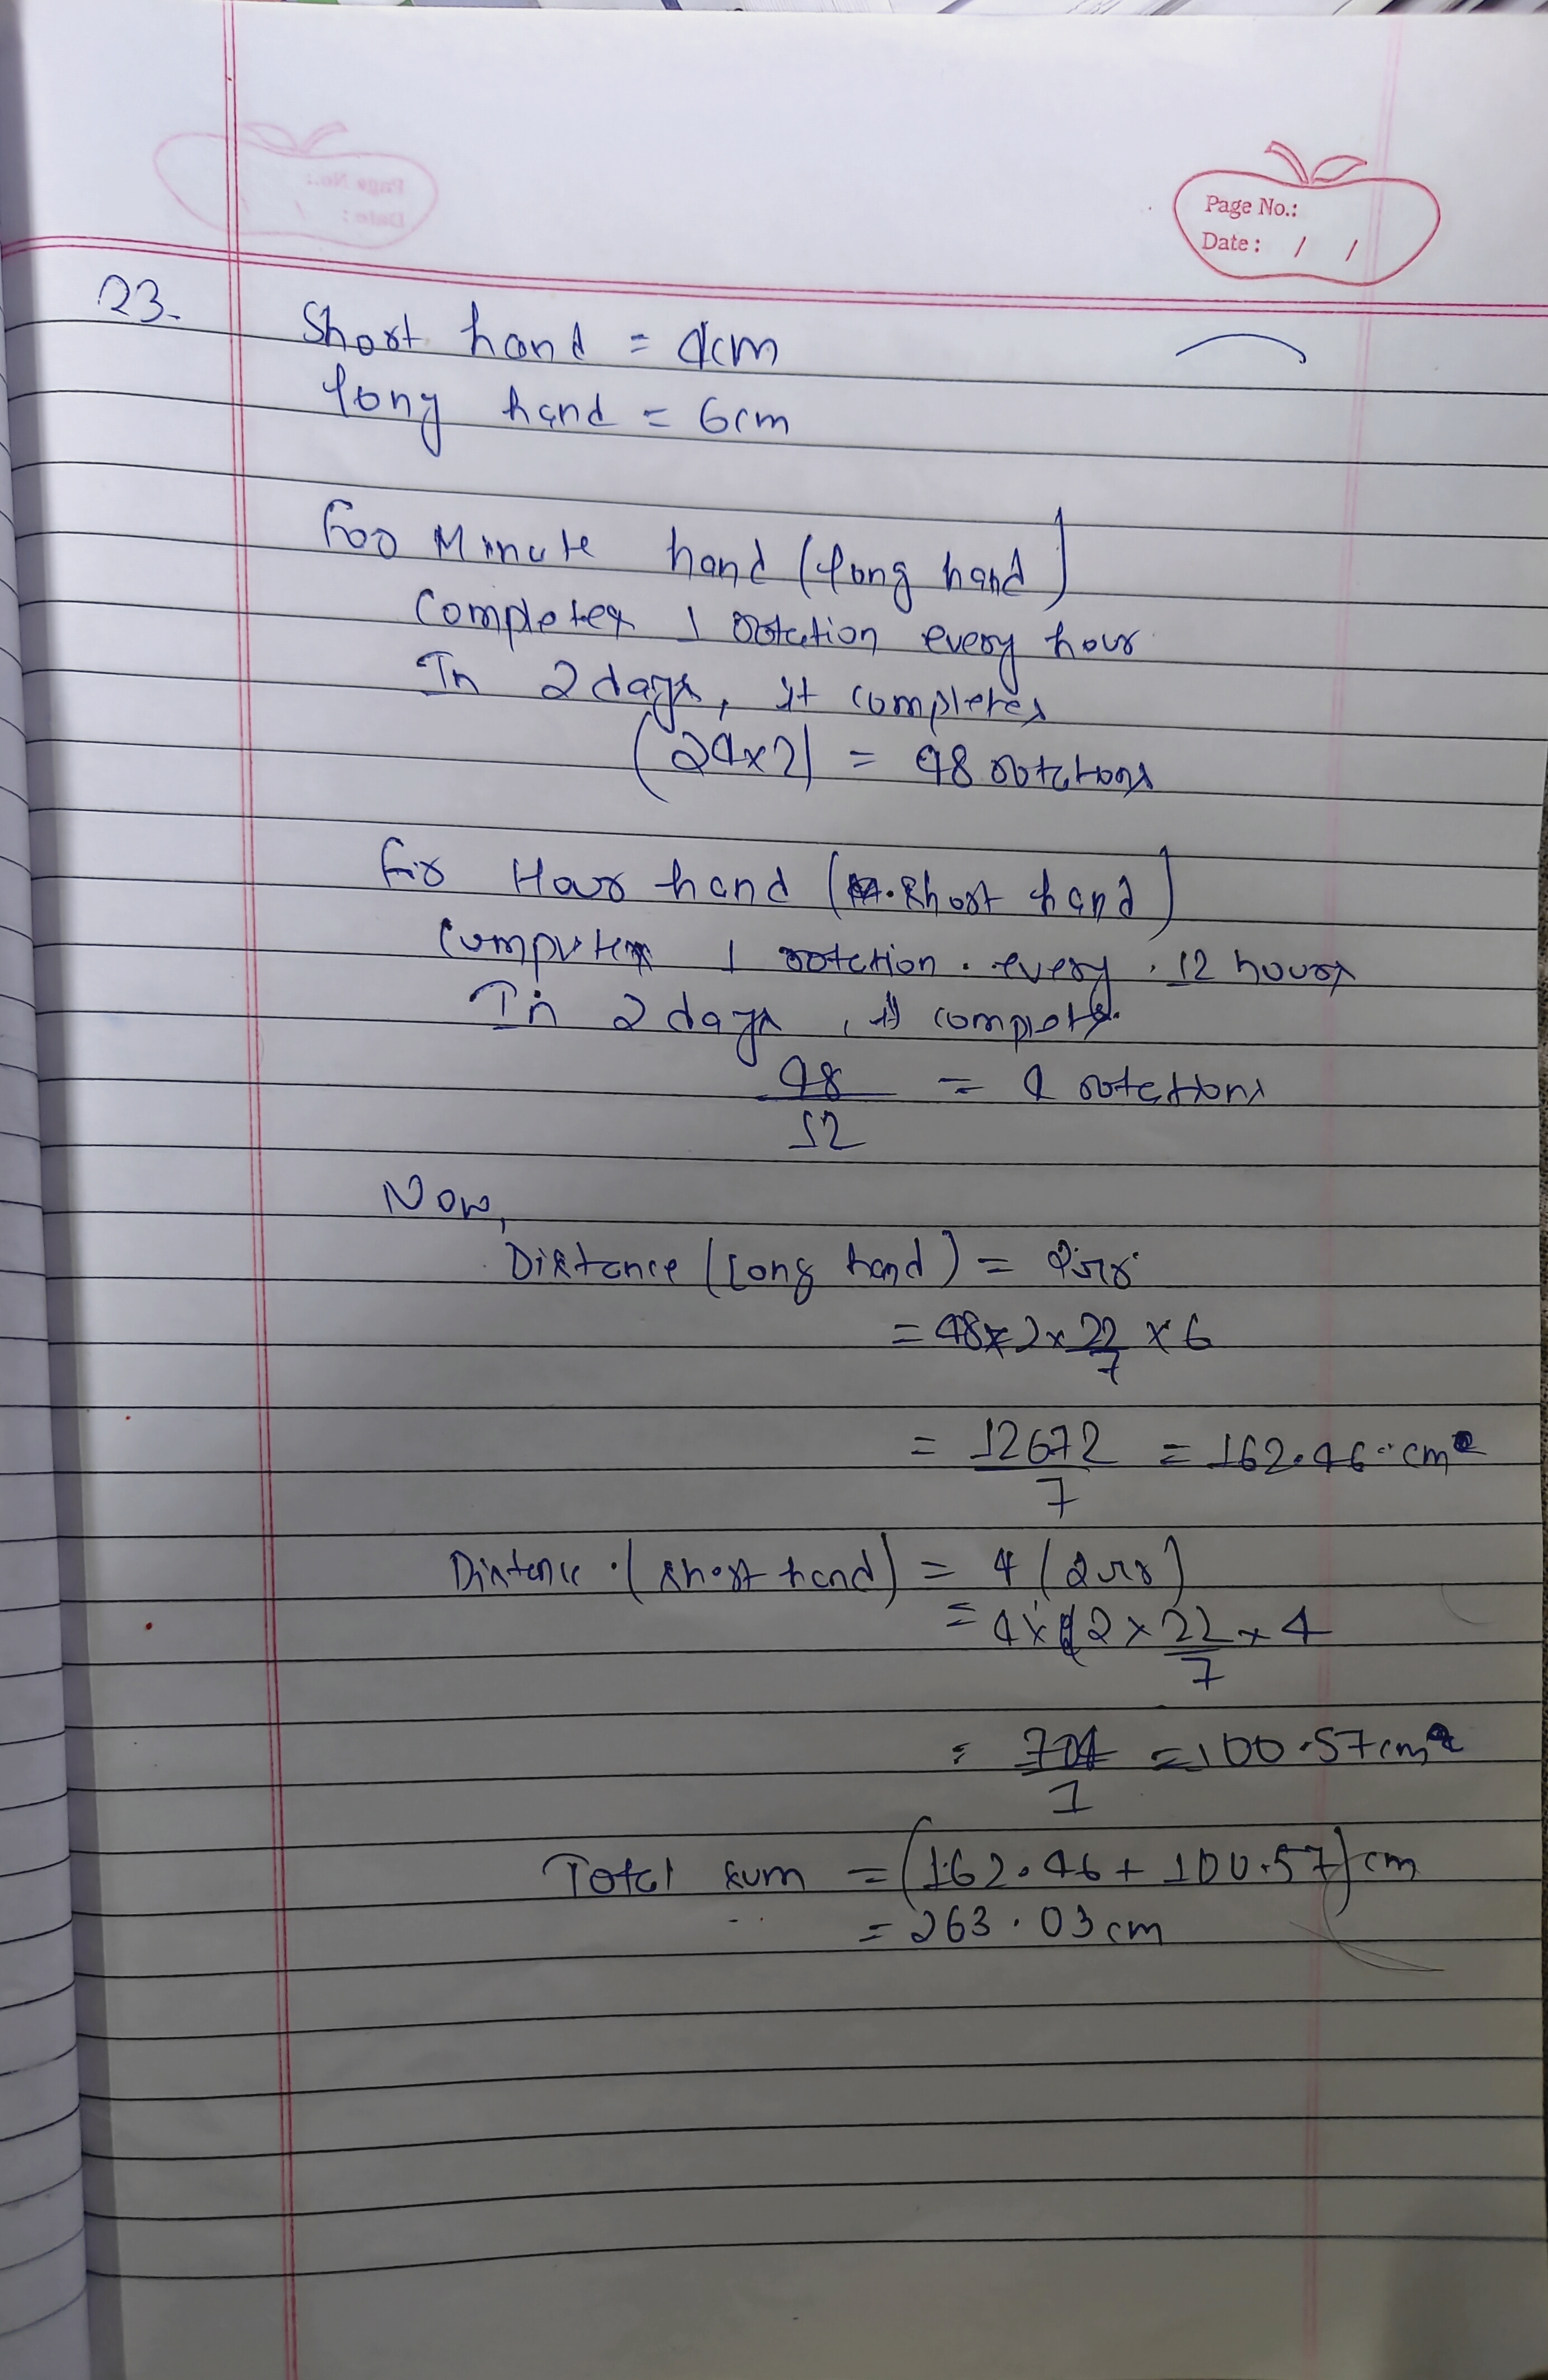 Page No.:
Date: / /
23.
Short hand = 4cm
long hand = 6cm
For Minute hand (long hand)
Completes 1 rotation every hour
In 2 days, it completes
(24×2) = 48 rotations
For Hour hand (short hand)
Completes 1 rotation every 12 hours
In 2 days, it completes
48/12 = 4 rotations
Now,
Distance (long hand) = 2πr
= 48×2×22/7 × 6
= 12672/7 = 162.46 cm
Distance (short hand) = 4(2πr)
= 4×2×22/7×4
= 704/7 = 100.57cm
Total sum = (162.46 + 100.57)cm
= 263.03cm